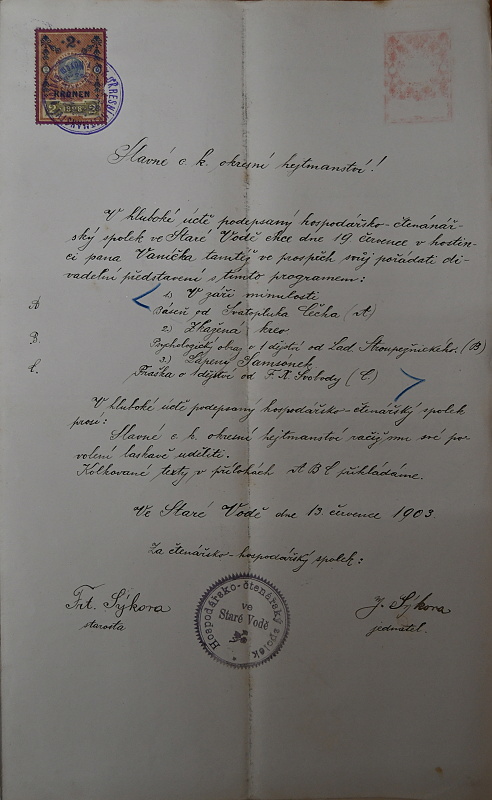 2
KRONEN
2 1898 2
Slavné c. k. okresní hejtmanství!
V hluboké úctě podepsaný hospodářsko-čtenář-
ský spolek ve Staré Vodě chce dne 19 července v hostin-
ci pana Vaníčka tamtéž ve prospěch svůj pořádati di-
vadelní představení s tímto programem:
A 1) V záři minulosti
Báseň od Svatopluka Čecha (A)
B. 2) Zkažená krev
Psychologický obraz o 1 dějství od Lad. Stroupežnického. (B)
C. 3) Lapený Samsónek
Fraška o 1 dějství od F. X. Svobody (C)
V hluboké úctě podepsaný hospodářsko-čtenářský spolek
prosí:
Slavné c. k. okresní hejtmanství račiž mu své po-
volení laskavě uděliti.
Kolkované texty v přílohách A B C přikládáme.
Ve Staré Vodě dne 13. července 1903.
Za čtenářsko-hospodářský spolek:
Frt. Sýkora
starosta
Hospodářsko-čtenářský spolek
ve
Staré Vodě
J. Sýkora
jednatel.